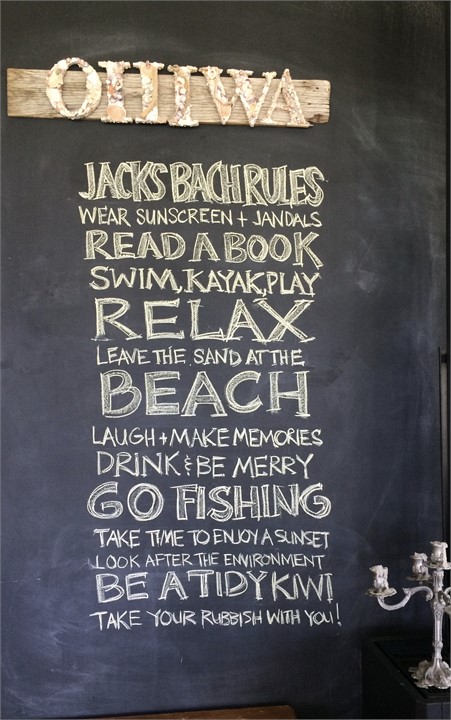 OHIWA
JACKS BACH RULES
WEAR SUNSCREEN + JANDALS
READ A BOOK
SWIM, KAYAK, PLAY
RELAX
LEAVE THE SAND AT THE
BEACH
LAUGH + MAKE MEMORIES
DRINK & BE MERRY
GO FISHING
TAKE TIME TO ENJOY A SUNSET
LOOK AFTER THE ENVIRONMENT
BE A TIDY KIWI
TAKE YOUR RUBBISH WITH YOU!